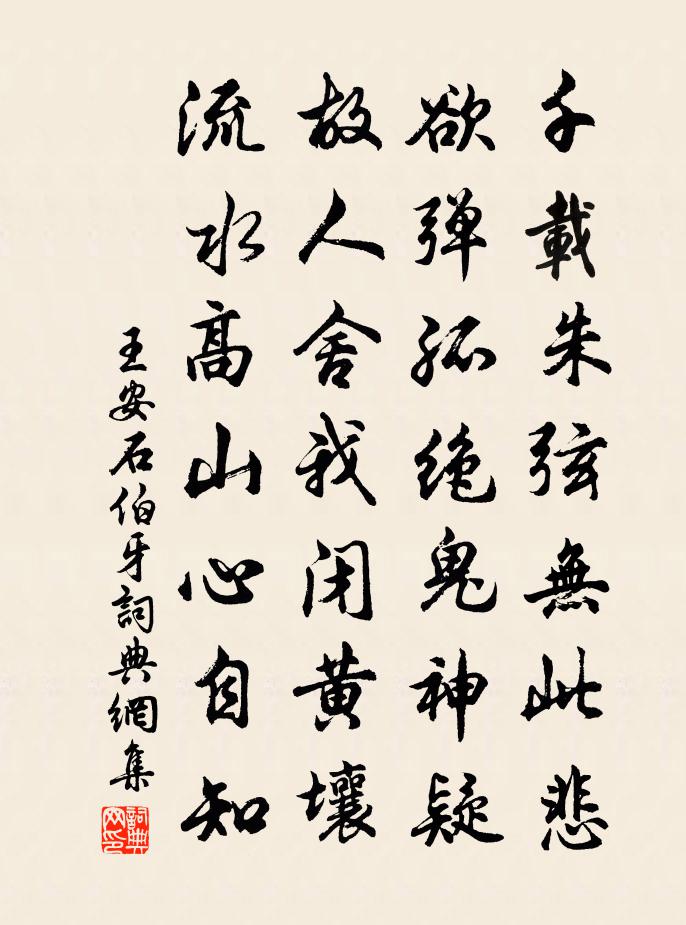 千載朱弦無此悲
欲弹孤絶鬼神疑
故人舍我闭黄壤
流水高山心自知
王安石伯牙詞典網集
詞典网印